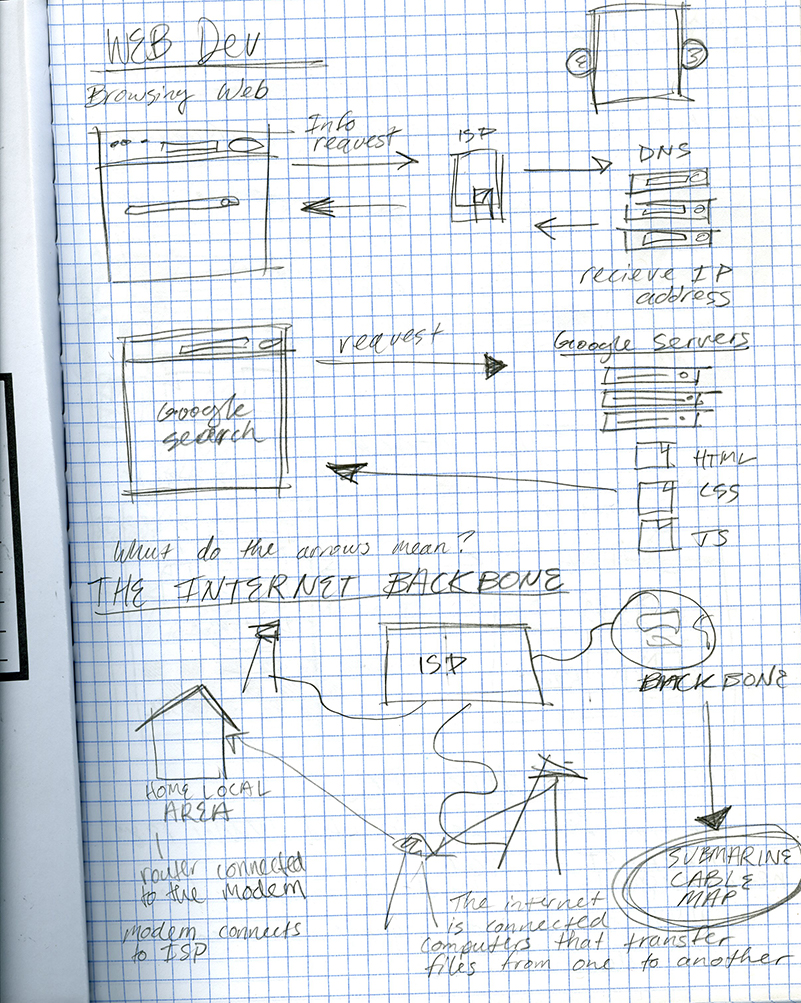 WEB Dev
Browsing Web
Info
request
ISP
DNS
recieve IP
address
request
Google Servers
Google
search
HTML
CSS
JS
What do the arrows mean?
THE INTERNET BACKBONE
ISP
BACKBONE
HOME LOCAL
AREA
router connected
to the modem
modem connects
to ISP
SUBMARINE
CABLE
MAP
The internet
is connected
computers that transfer
files from one to another